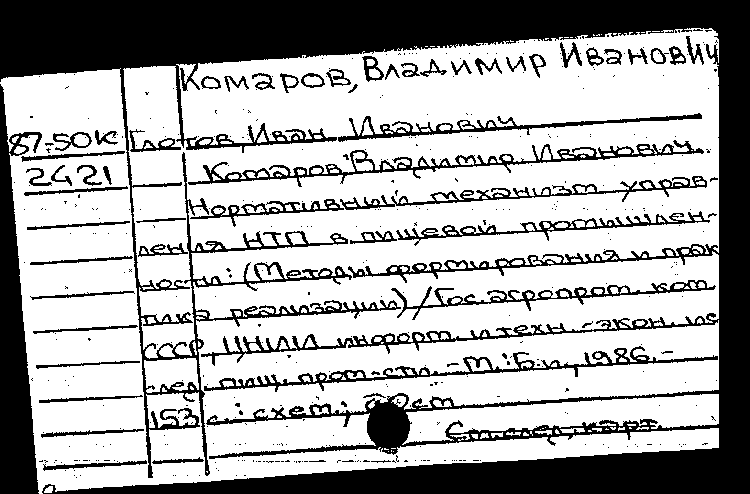 Комаров, Владимир Иванович
87-50К Глотов, Иван Иванович,
2421 Комаров, Владимир Иванович.
Нормативный механизм управ-
ления НТП в пищевой промышлен-
ности: (Методы формирования и прак
тика реализации) / Госагропром. ком
СССР, ЦНИИ информ. и техн.-экон. ис
след. пищ. пром-сти. - М.: Б.и., 1986. -
153 с.: схем.; см
См. след. карт.